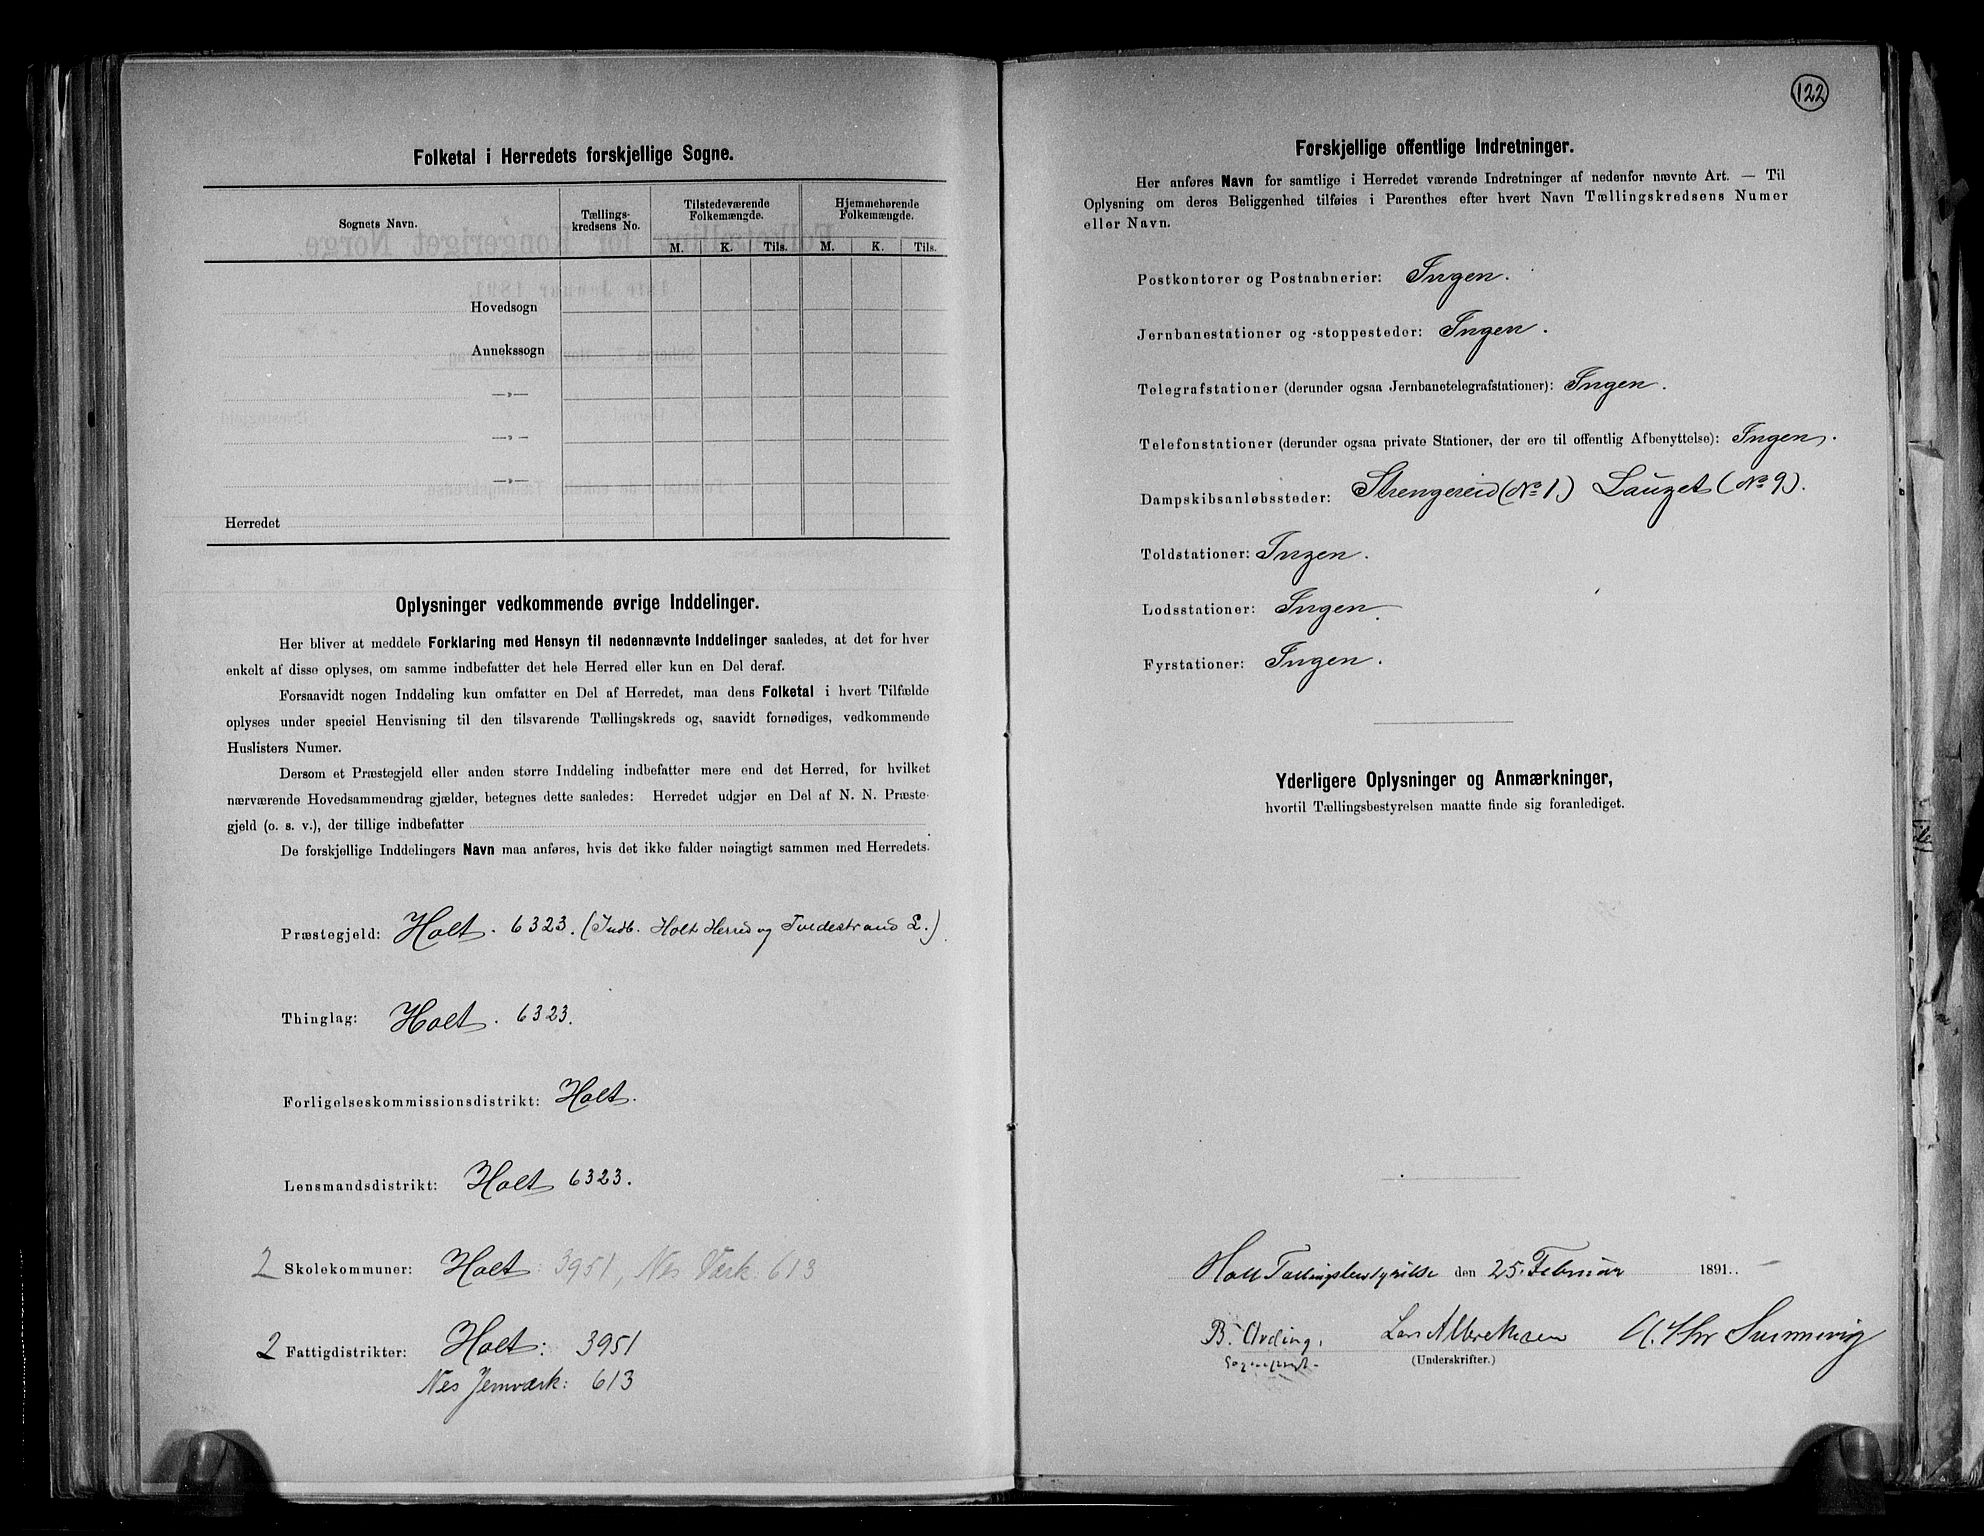 Folketal i Herredets forskjellige Sogne.
Sognets Navn.
Tællings-
kredsens No.
Tilstedeværende
Folkemængde.
Hjemmehørende
Folkemængde.
M. K. Tils. M. K. Tils.
Hovedsogn
Annekssogn
—„—
—„—
—„—
Herredet
Oplysninger vedkommende øvrige Inddelinger.
Her bliver at meddele Forklaring med Hensyn til nedennævnte Inddelinger saaledes, at det for hver
enkelt af disse oplyses, om samme indbefatter det hele Herred eller kun en Del deraf.
Forsaavidt nogen Inddeling kun omfatter en Del af Herredet, maa dens Folketal i hvert Tilfælde
oplyses under speciel Henvisning til den tilsvarende Tællingskreds og, saavidt fornødiges, vedkommende
Huslisters Numer.
Dersom et Præstegjeld eller anden større Inddeling indbefatter mere end det Herred, for hvilket
nærværende Hovedsammendrag gjælder, betegnes dette saaledes: Herredet udgjør en Del af N. N. Præste-
gjeld (o. s. v.), der tillige indbefatter
De forskjellige Inddelingers Navn maa anføres, hvis det ikke falder nøiagtigt sammen med Herredets.
Præstegjeld: Holt. 6323. (Indb. Holt Herred og Tvedestrand L.)
Thinglag: Holt. 6323.
Forligelseskommissionsdistrikt: Holt.
Lensmandsdistrikt: Holt 6323.
2 Skolekommuner: Holt: 3951, Nes Værk 613
2 Fattigdistrikter: Holt: 3951
Nes Jernværk: 613
122
Forskjellige offentlige Indretninger.
Her anføres Navn for samtlige i Herredet værende Indretninger af nedenfor nævnte Art. — Til
Oplysning om deres Beliggenhed tilføies i Parenthes efter hvert Navn Tællingskredsens Numer
eller Navn.
Postkontorer og Postaabnerier: Ingen.
Jernbanestationer og -stoppesteder: Ingen.
Telegrafstationer (derunder ogsaa Jernbanetelegrafstationer): Ingen.
Telefonstationer (derunder ogsaa private Stationer, der ere til offentlig Afbenyttelse): Ingen.
Dampskibsanløbssteder: Strengereid (No 1) Lauget (No 9).
Toldstationer: Ingen.
Lodsstationer: Ingen.
Fyrstationer: Ingen.
Yderligere Oplysninger og Anmærkninger,
hvortil Tællingsbestyrelsen maatte finde sig foranlediget.
Holt Tællingsbestyrelse den 25. Februar 1891.
B. Arding, Lars Albretsen
Sognepræst.
(Underskrifter.)